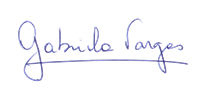 Gabriela Vargas